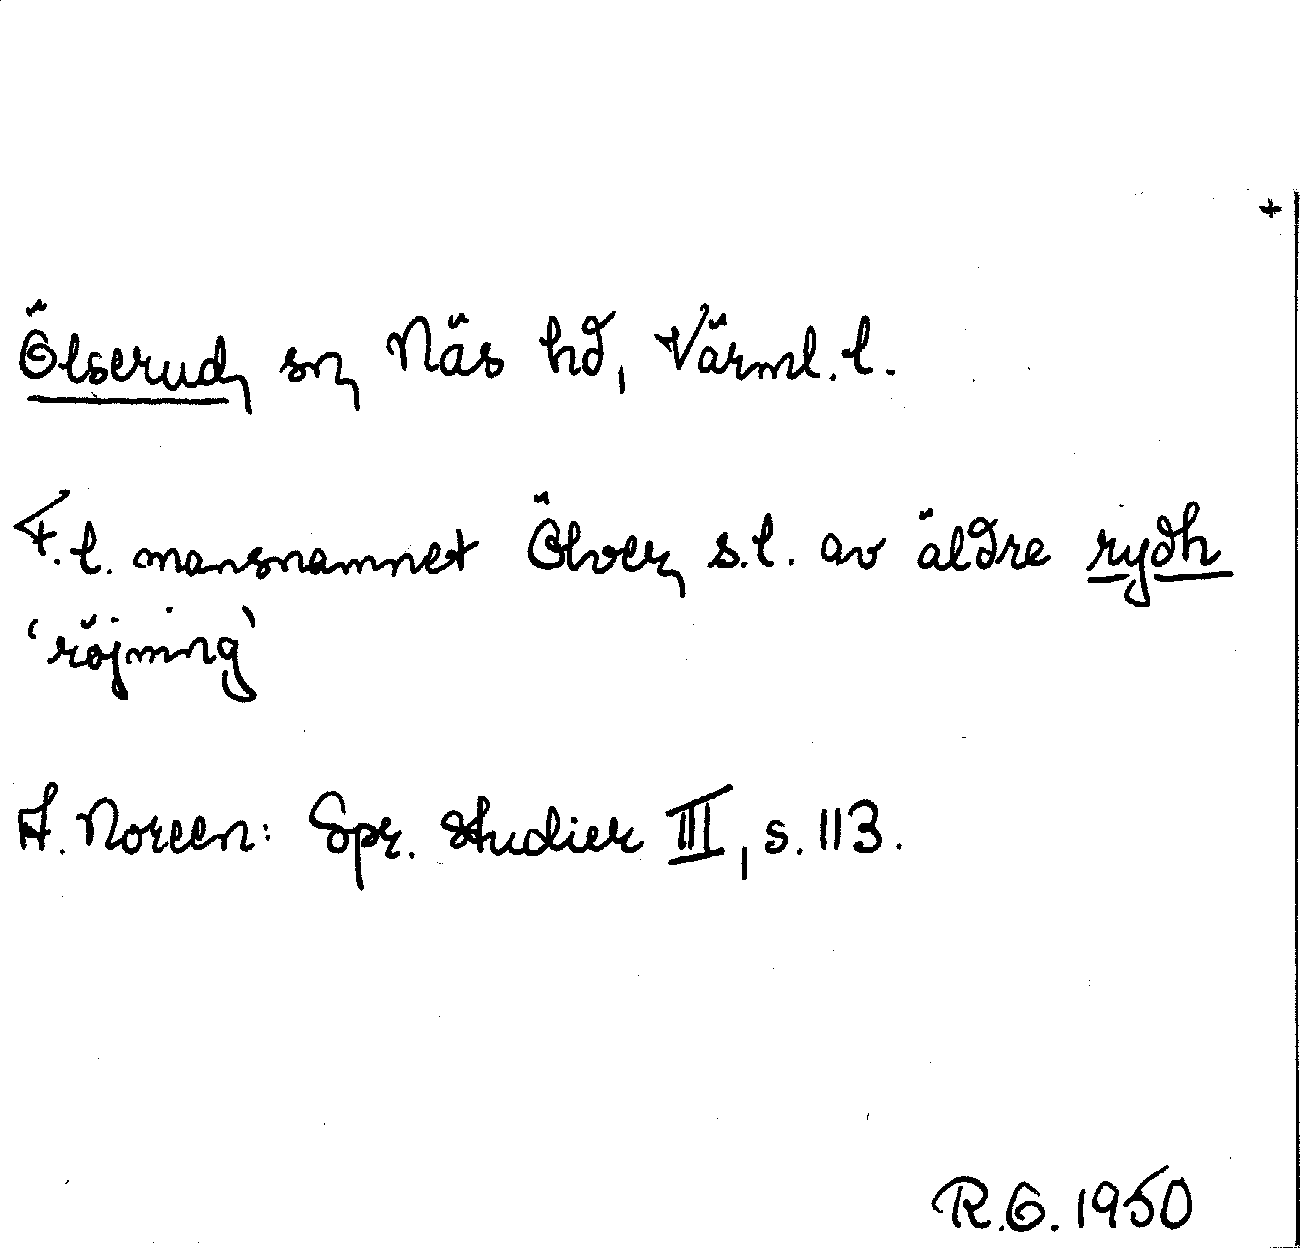 +
Ölserud, sn, Näs hd, Värml. l.
F. l. mansnamnet Ölver, s.l. av äldre rydh
'röjning'
A. Noreen: Spr. studier III, s. 113.
R.G. 1950